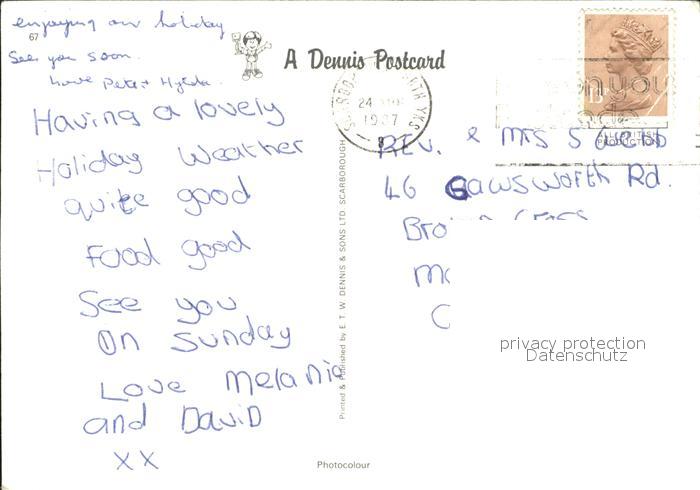 enjoying our holiday
67
See you soon.
Love Peter + Hylda.
Having a lovely
Holiday Weather
quite good
Food good
See you
On Sunday
Love Melanie
and David
XX
A Dennis Postcard
24
1987
Printed & Published by E. T. W. DENNIS & SONS LTD. SCARBOROUGH
Photocolour
13
REV. & MRS S
46 Gawsworth Rd.
Bro
privacy protection
Datenschutz